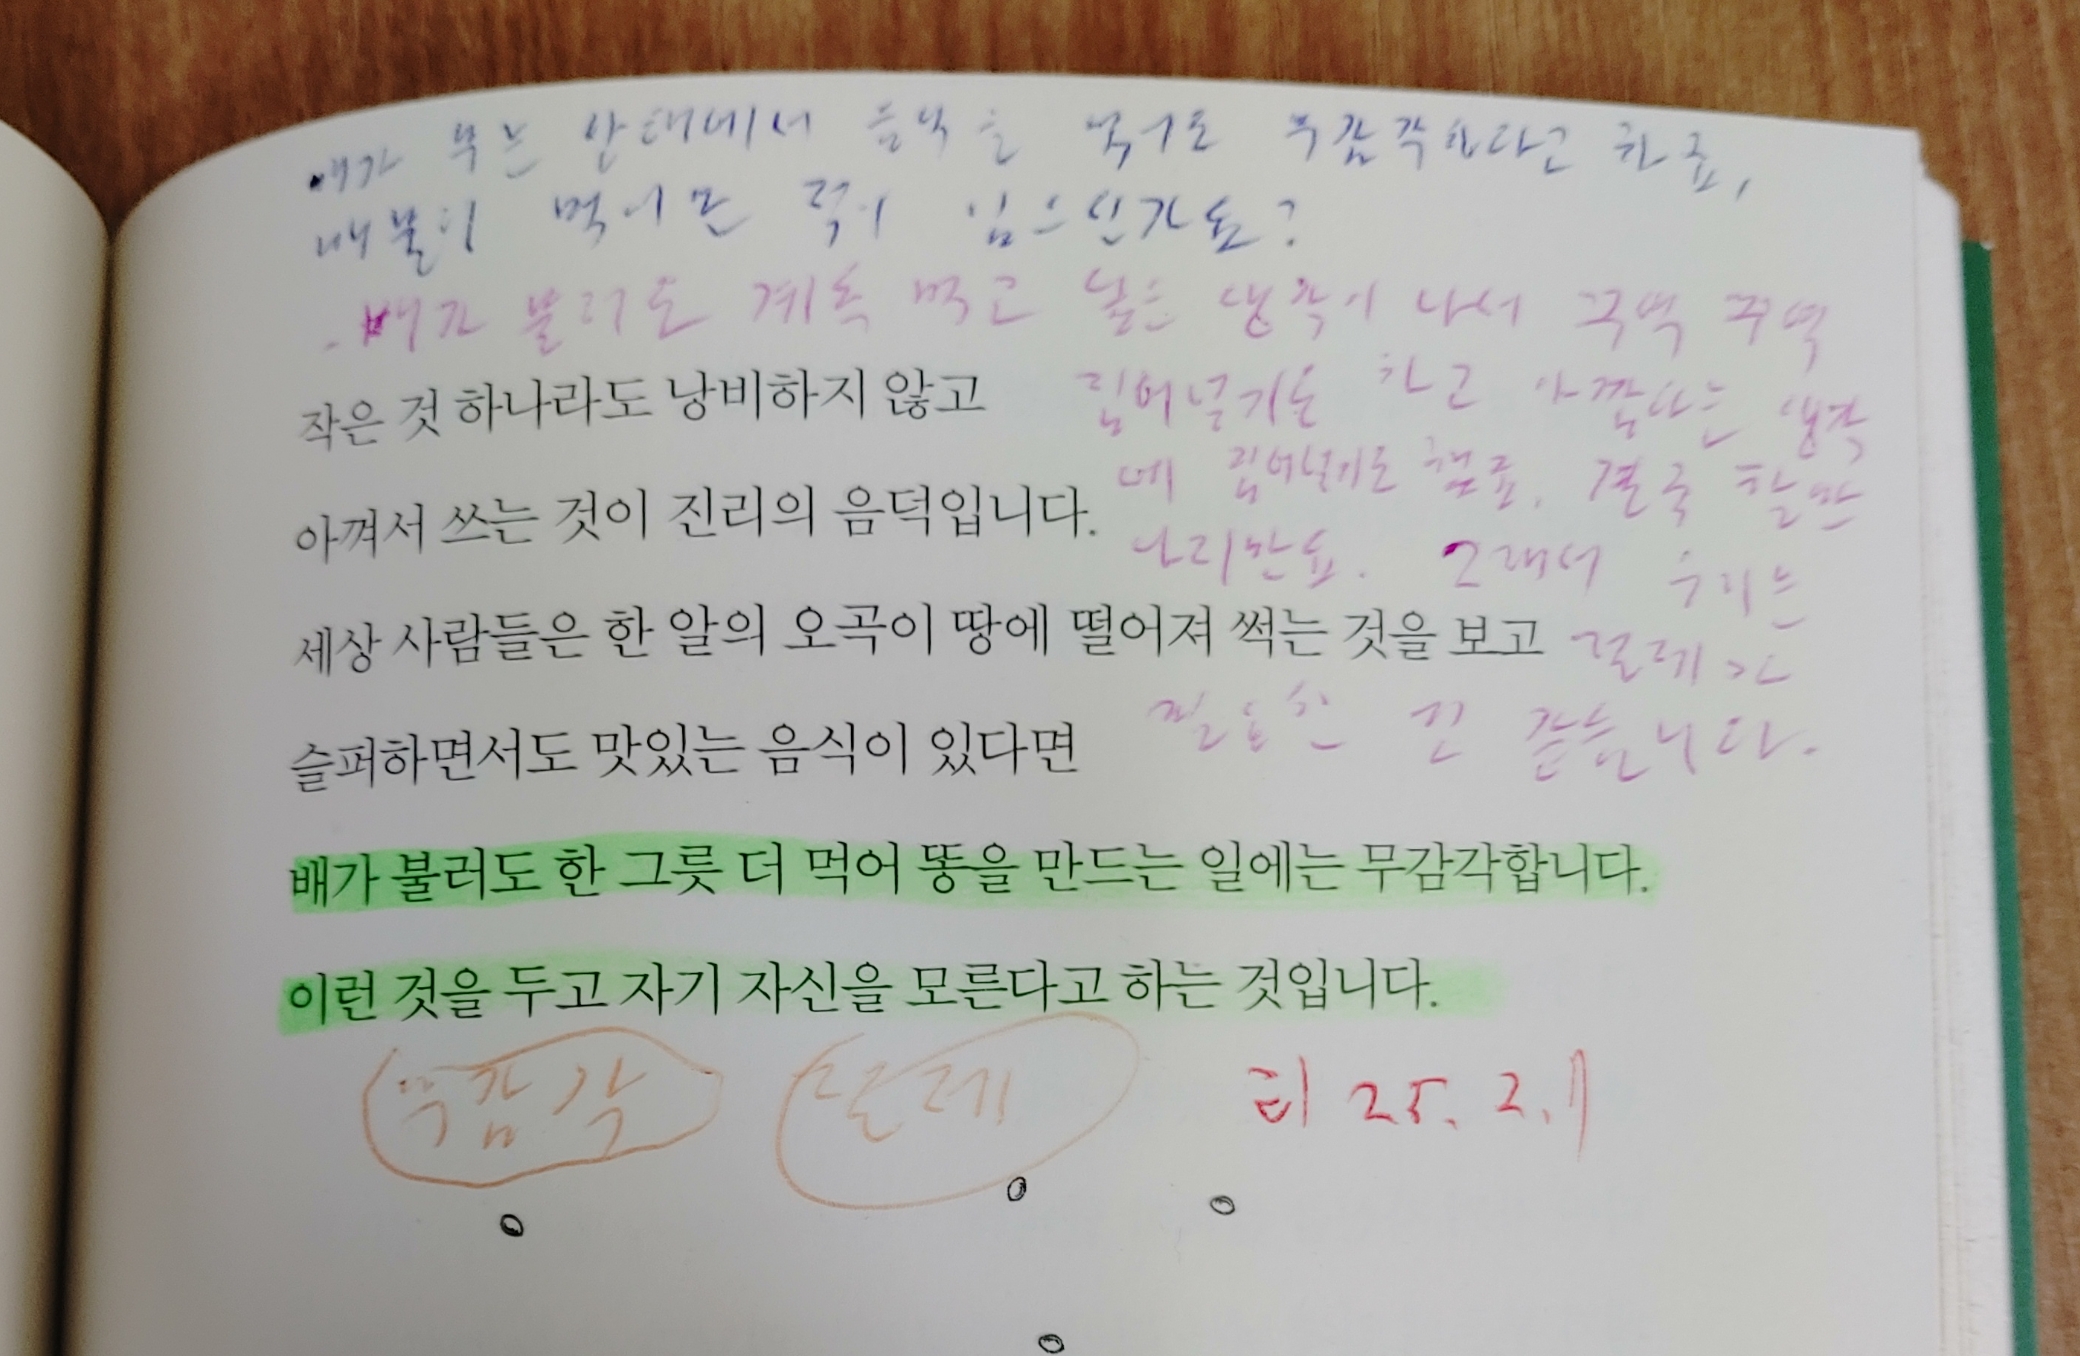 배가 부른 상태에서 음식을 먹어도 무감각하다고 하죠,
배불리 먹으면 인가요?
배가 불러도 계속 먹고 싶은 생각이 나서 꾸역 꾸역
작은 것 하나라도 낭비하지 않고
집어넣기도 하고 아깝다는 생각
에 집어넣기도 했죠. 결국 탈만
아껴서 쓰는 것이 진리의 음덕입니다.
나지만요. 그래서 우리는
세상 사람들은 한 알의 오곡이 땅에 떨어져 썩는 것을 보고
절제가
필요한 것 같습니다.
슬퍼하면서도 맛있는 음식이 있다면
배가 불러도 한 그릇 더 먹어 똥을 만드는 일에는 무감각합니다.
이런 것을 두고 자기 자신을 모른다고 하는 것입니다.
무감각
25. 2. 1